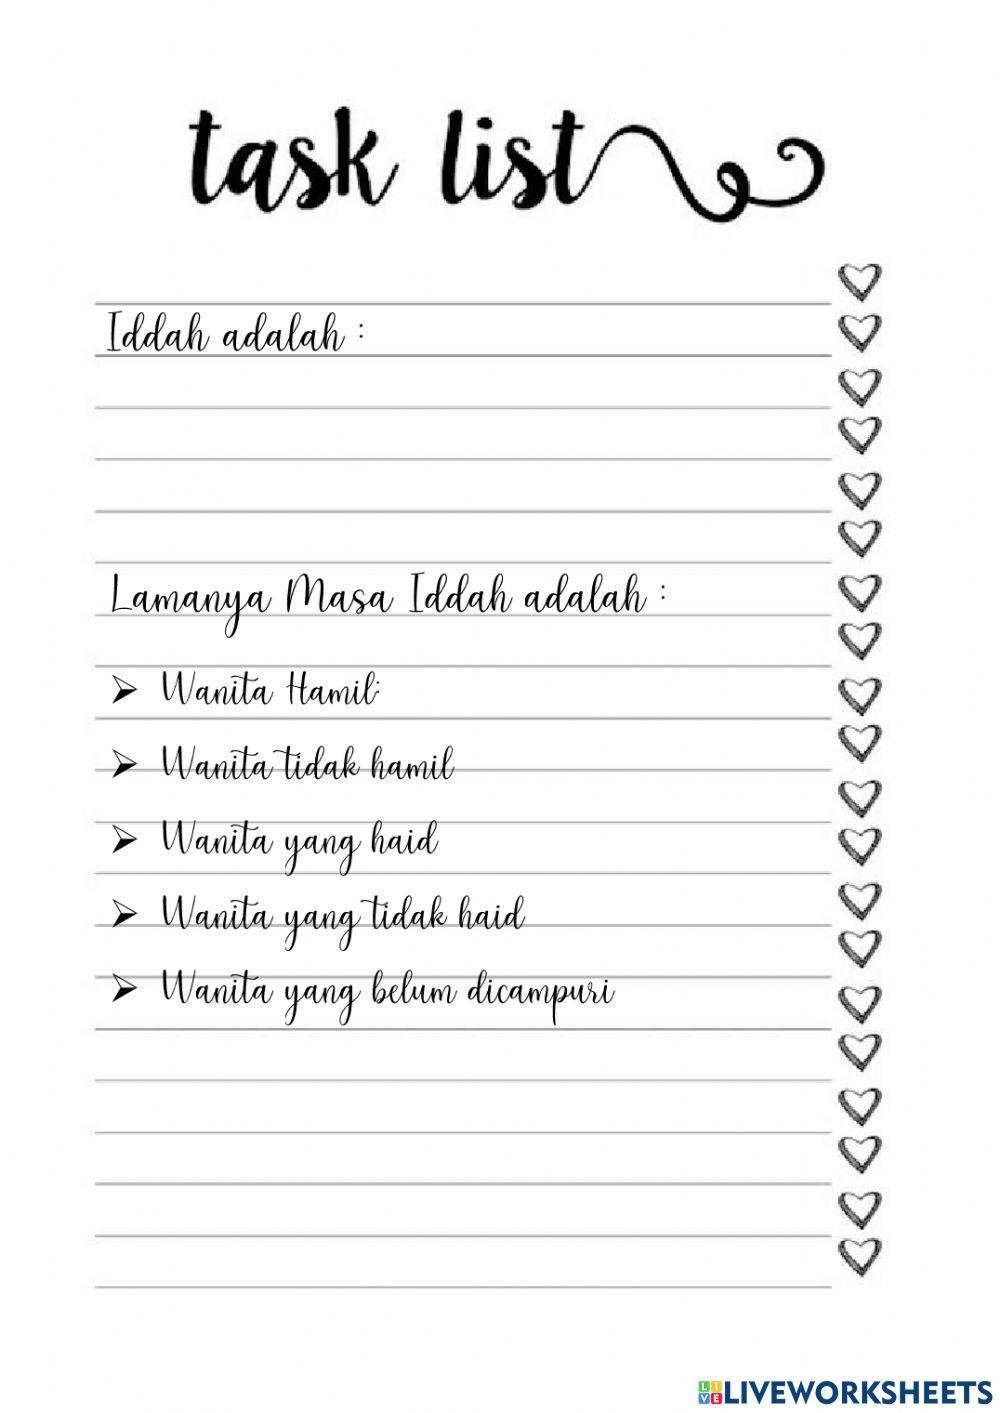 task list
Iddah adalah :
Lamanya Masa Iddah adalah :
➢ Wanita Hamil:
➢ Wanita tidak hamil
➢ Wanita yang haid
➢ Wanita yang tidak haid
➢ Wanita yang belum dicampuri
LIVE LIVEWORKSHEETS